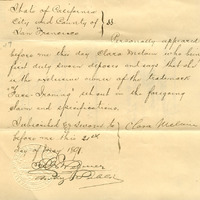 State of California
City and County of } SS.
San Francisco
Personally appeared
before me this day Clara Melvin who being
first duly sworn deposes and says that she
is the exclusive owner of the Trademark
"Face Training" set out in the foregoing
claim and specifications.
Subscribed & sworn to } Clara Melvin
before me this 21st
day of May 1901